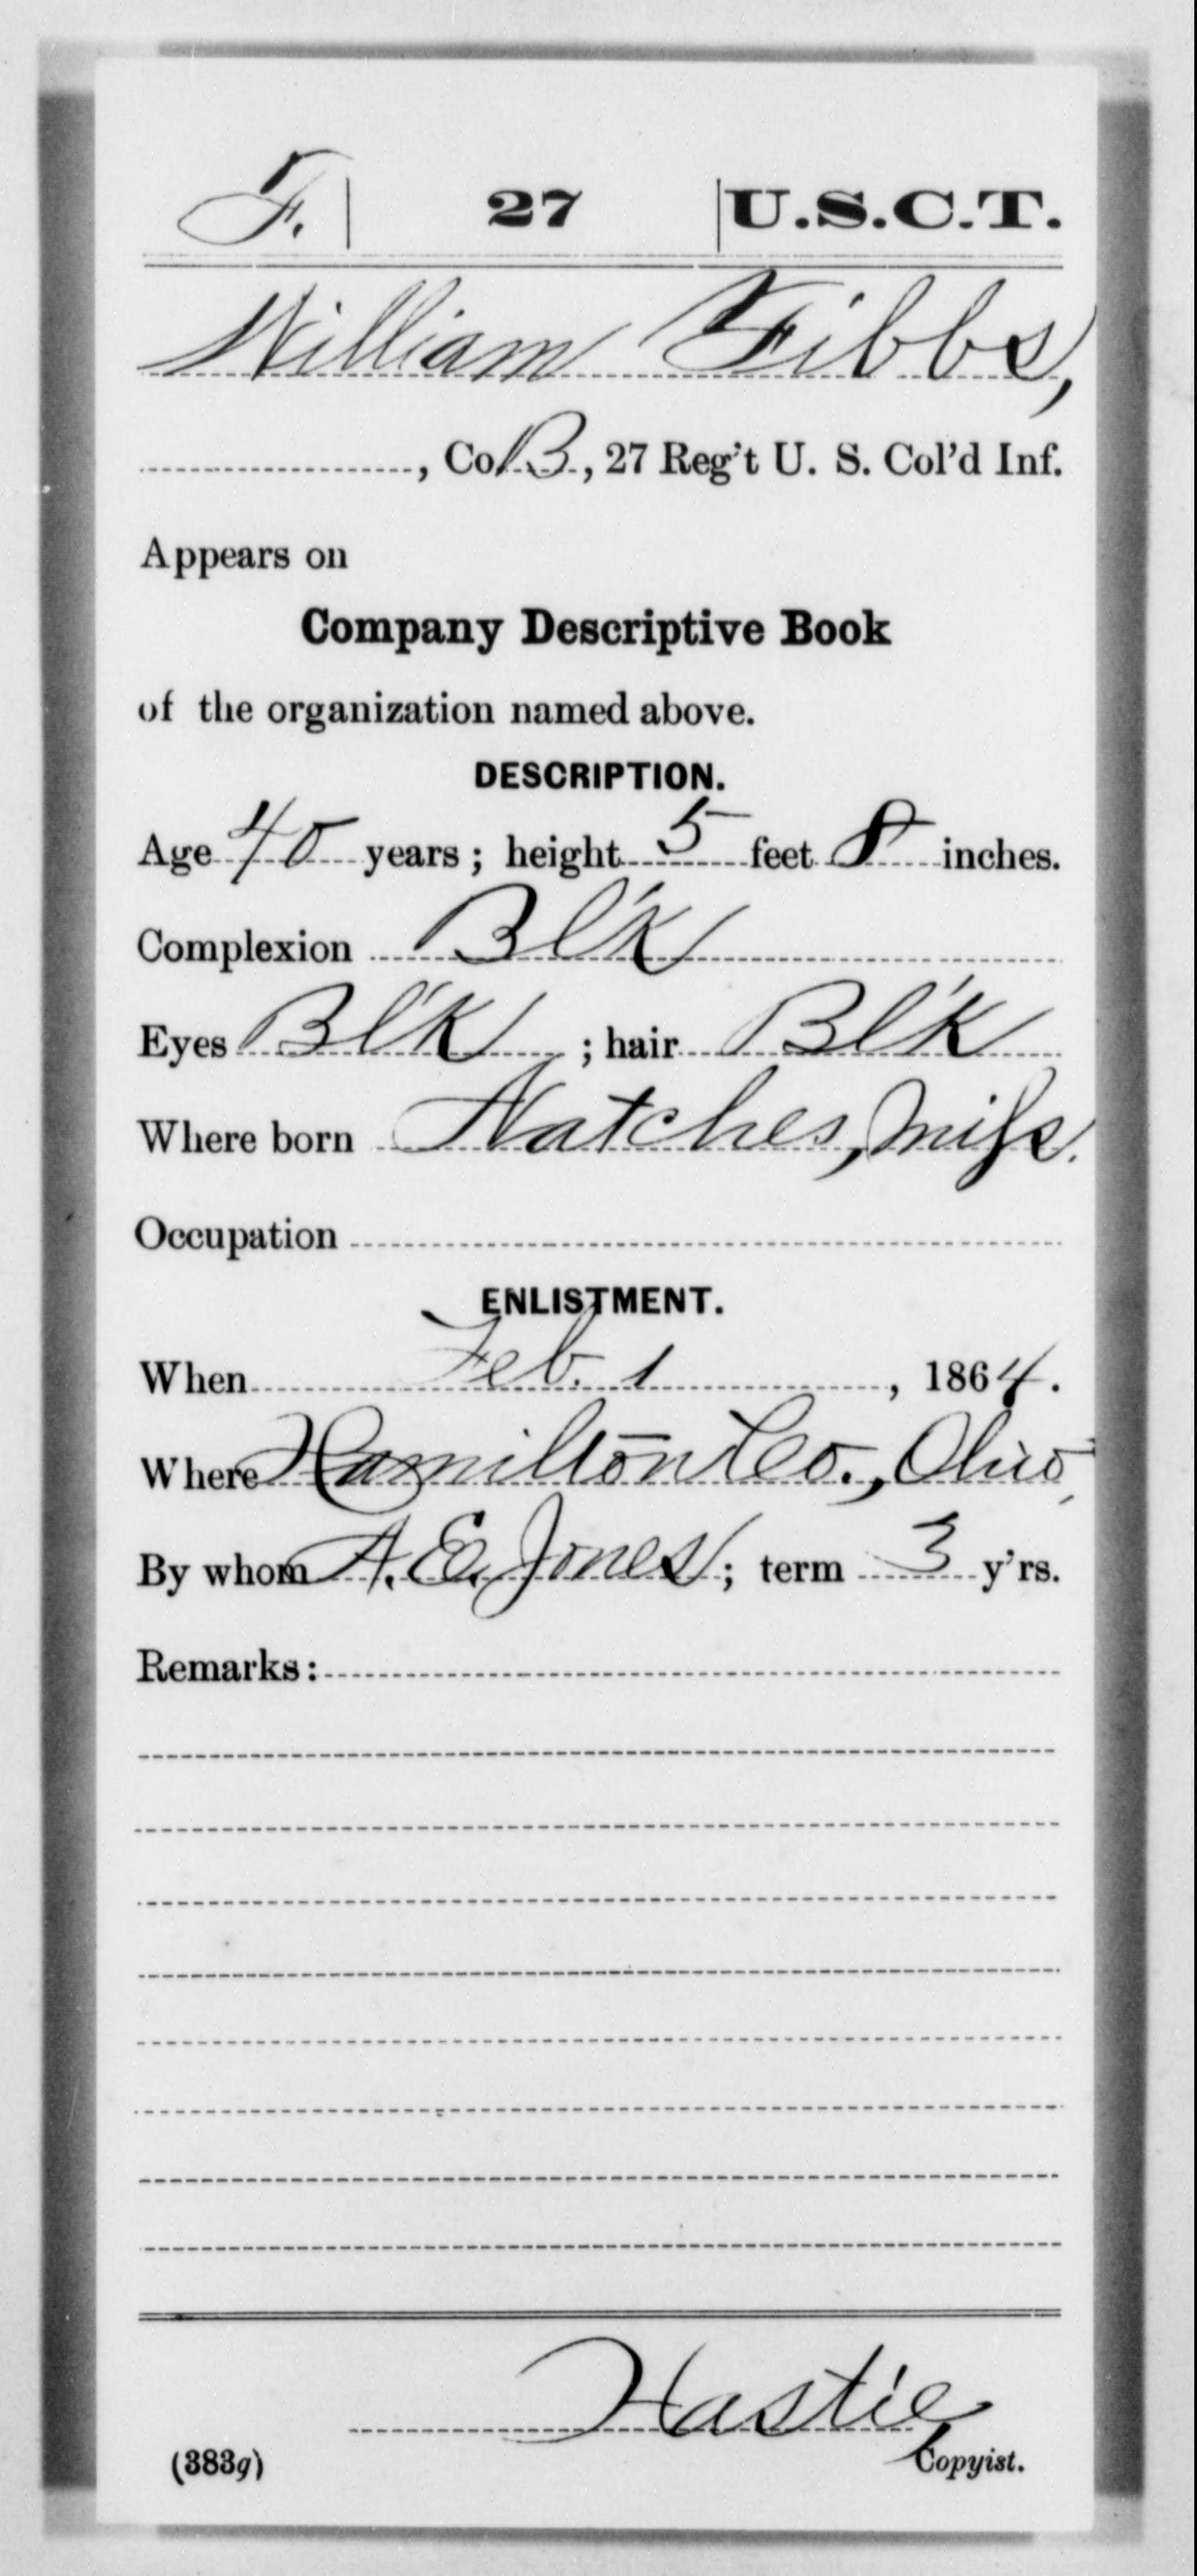 F. | 27 | U.S.C.T.
William Fibbs,
, Co. B, 27 Reg't U. S. Col'd Inf.
Appears on
Company Descriptive Book
of the organization named above.
DESCRIPTION.
Age 40 years; height 5 feet 8 inches.
Complexion Bl'k
Eyes Bl'k ; hair Bl'k
Where born Natches, Miss.
Occupation
ENLISTMENT.
When Feb. 1, 1864.
Where Hamilton Co., Ohio
By whom A. E. Jones; term 3 y'rs.
Remarks:
Hastie
(383g) Copyist.